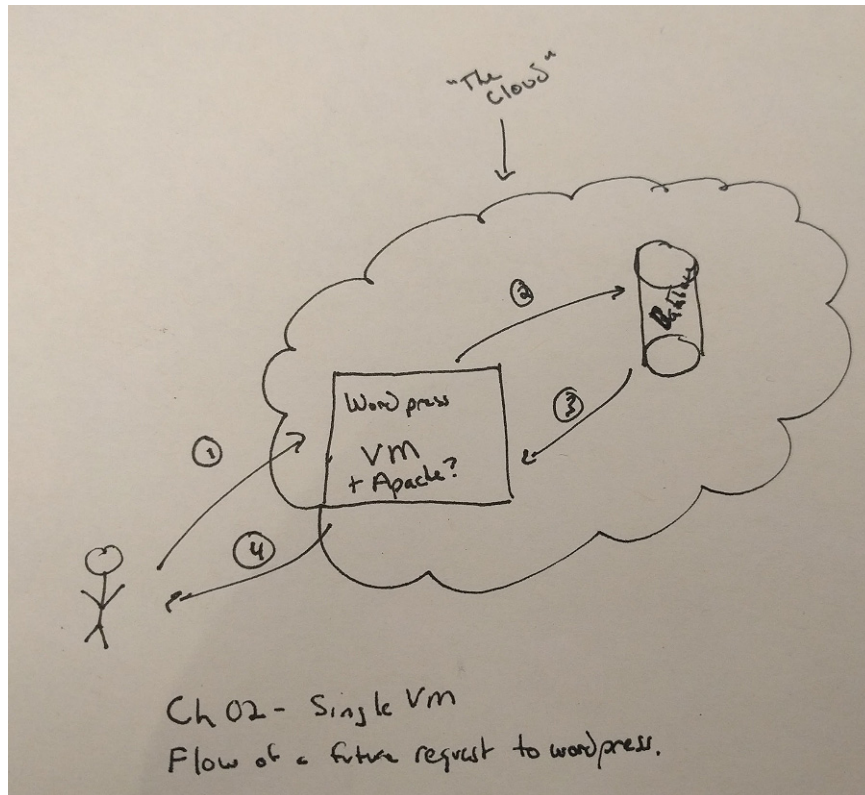 "The
Cloud"
②
Database
Wordpress
③
①
VM
+ Apache?
④
Ch 02 - Single VM
Flow of a future request to wordpress.